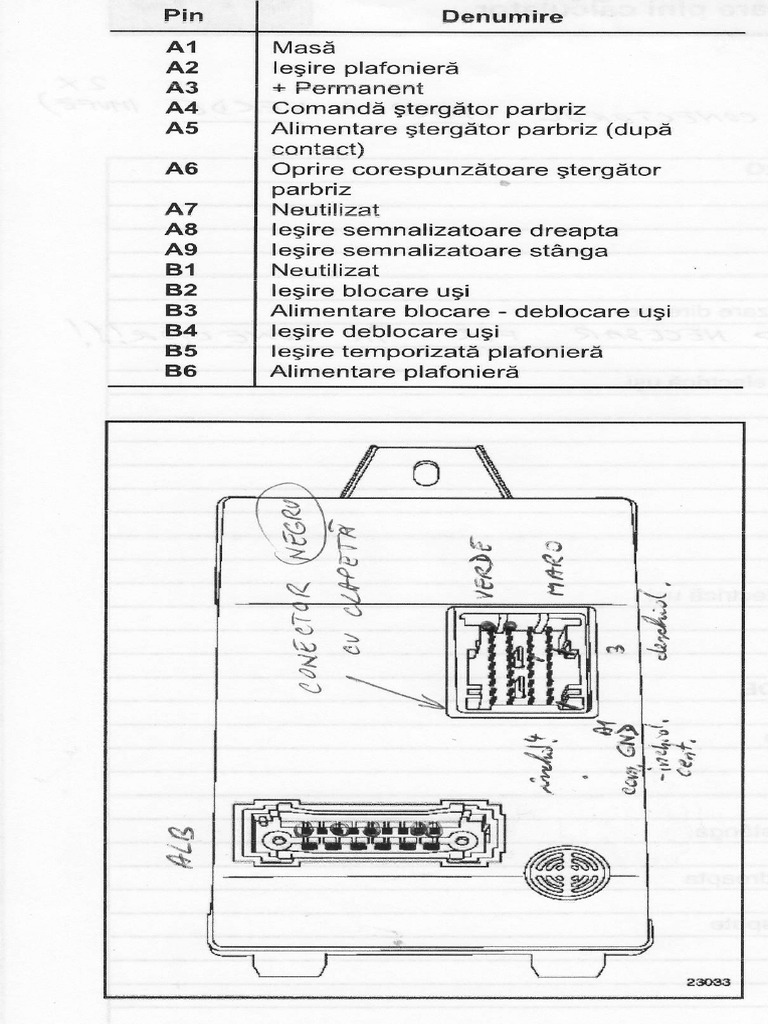 Pin Denumire
A1 Masă
A2 Ieşire plafonieră
A3 + Permanent
A4 Comandă ştergător parbriz
A5 Alimentare ştergător parbriz (după
contact)
A6 Oprire corespunzătoare ştergător
parbriz
A7 Neutilizat
A8 Ieşire semnalizatoare dreapta
A9 Ieşire semnalizatoare stânga
B1 Neutilizat
B2 Ieşire blocare uşi
B3 Alimentare blocare - deblocare uşi
B4 Ieşire deblocare uşi
B5 Ieşire temporizată plafonieră
B6 Alimentare plafonieră
CONECTOR NEGRU
CU CLAPETĂ
VERDE
MARO
3
deschid.
închid. 4
A1
com. GND
-închid.
cent.
ALB
23033